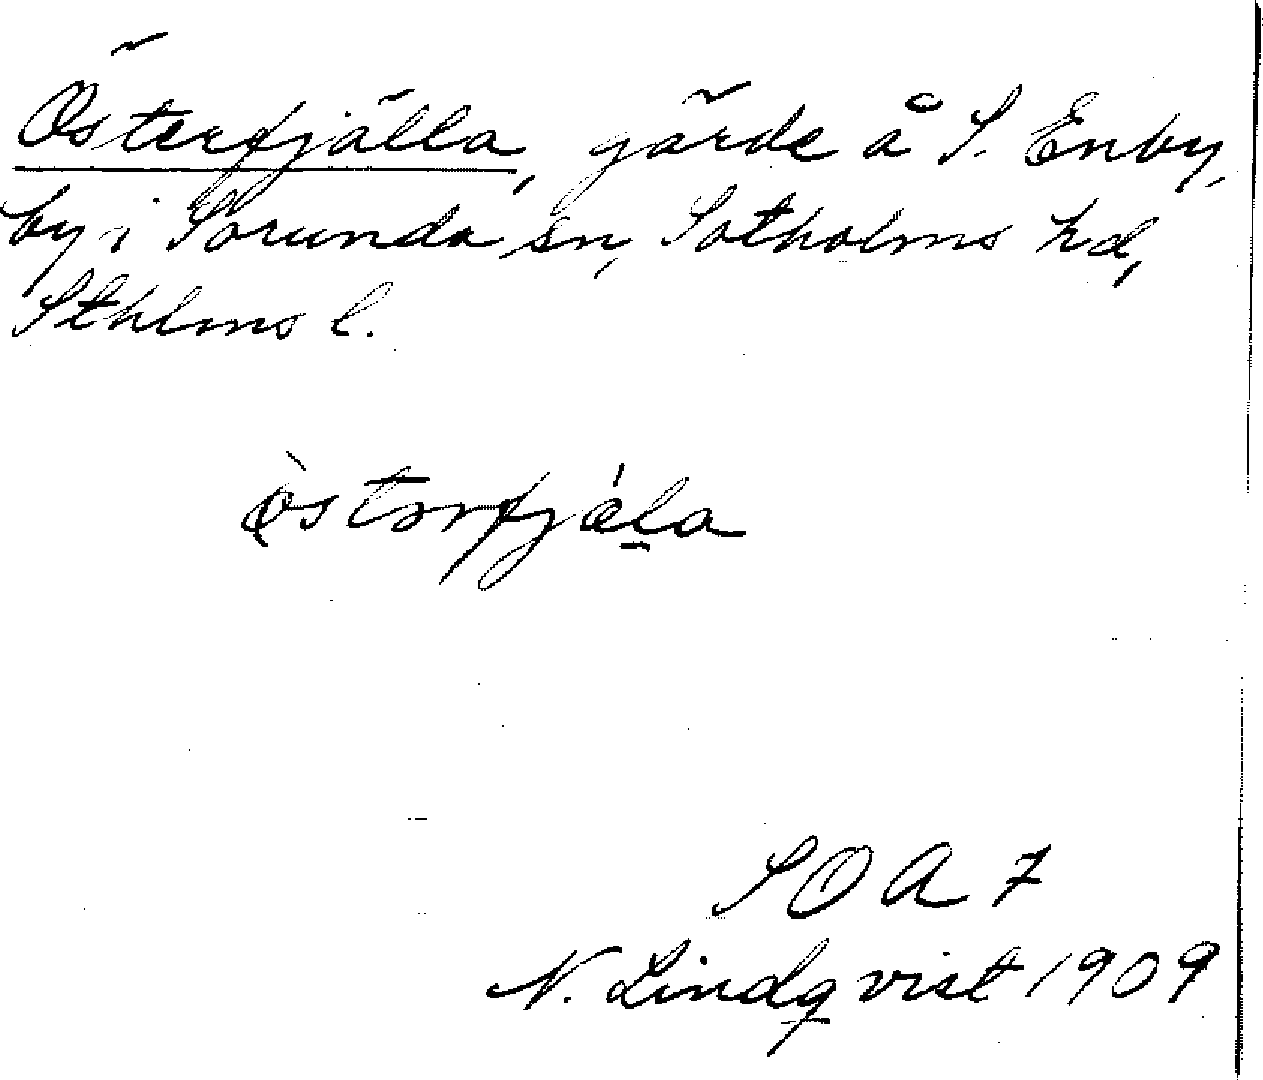 Österfjälla, gärde å S. Enby,
by i Sorunda sn, Sotholms hd,
Sthlms l.
östərfjæ̀la
S O A 7
N. Lindqvist 1909